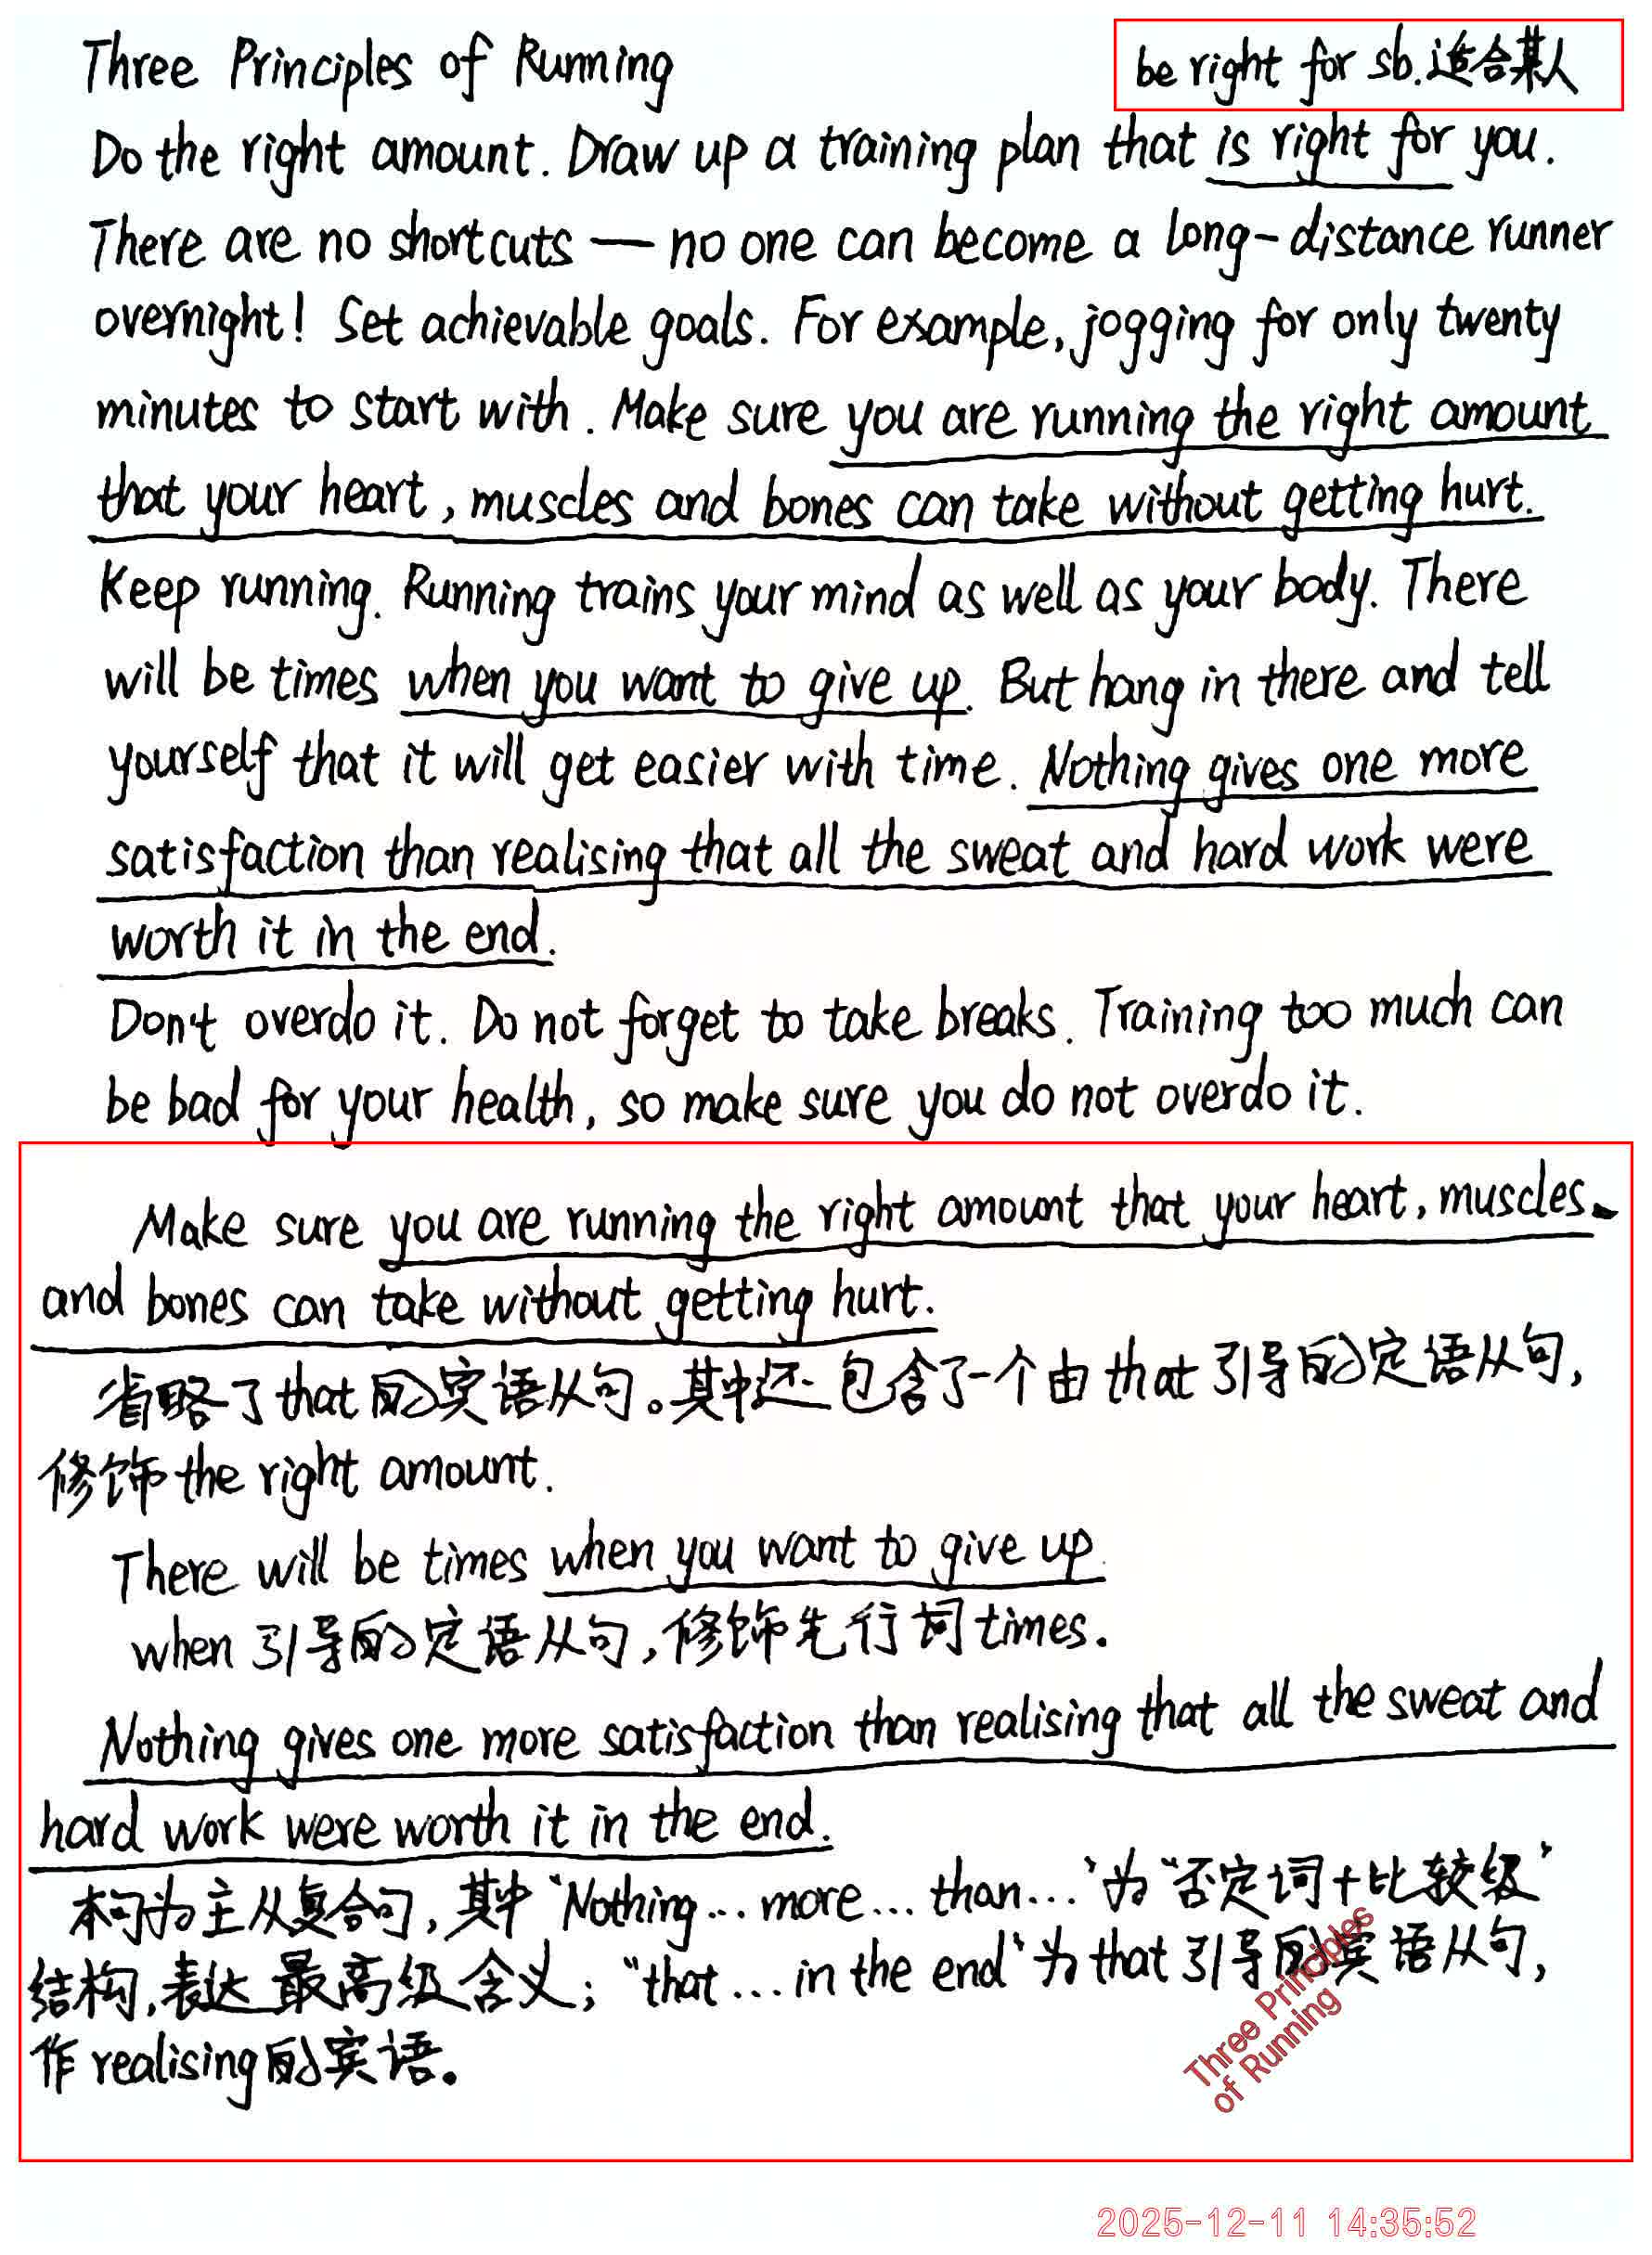 Three Principles of Running
be right for sb.适合某人
Do the right amount. Draw up a training plan that is right for you.
There are no shortcuts — no one can become a long-distance runner
overnight! Set achievable goals. For example, jogging for only twenty
minutes to start with. Make sure you are running the right amount
that your heart, muscles and bones can take without getting hurt.
Keep running. Running trains your mind as well as your body. There
will be times when you want to give up. But hang in there and tell
yourself that it will get easier with time. Nothing gives one more
satisfaction than realising that all the sweat and hard work were
worth it in the end.
Don't overdo it. Do not forget to take breaks. Training too much can
be bad for your health, so make sure you do not overdo it.
Make sure you are running the right amount that your heart, muscles
and bones can take without getting hurt.
省略了that的宾语从句。其中还包含了一个由that引导的定语从句,
修饰the right amount.
There will be times when you want to give up.
when引导的定语从句,修饰先行词times.
Nothing gives one more satisfaction than realising that all the sweat and
hard work were worth it in the end.
本句为主从复合句,其中“Nothing...more...than...”为“否定词+比较级”
结构,表达最高级含义;“that...in the end”为that引导的宾语从句,
作realising的宾语。
Three Principles
of Running
2025-12-11 14:35:52